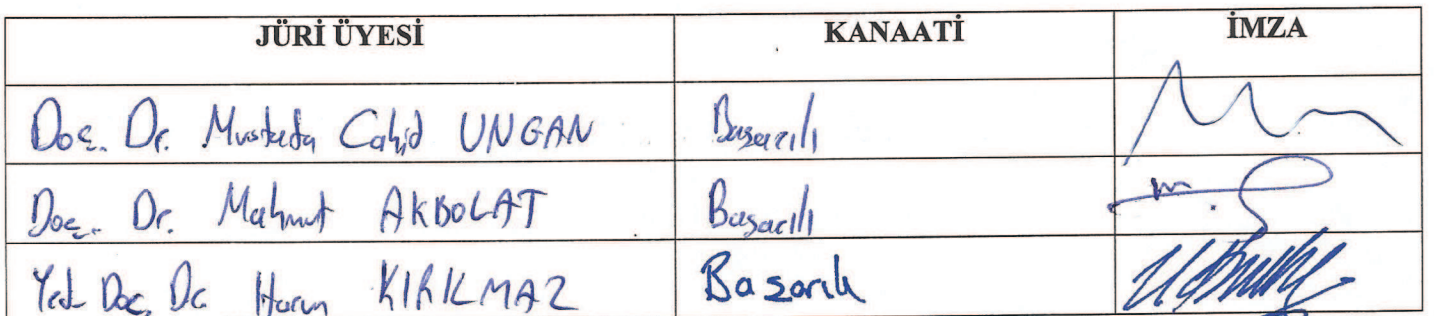 JÜRİ ÜYESİ KANAATİ İMZA
Doç. Dr. Mustafa Cahid UNGAN Başarılı
Doç. Dr. Mahmut AKBOLAT Başarılı
Yrd. Doç. Dr. Harun KIRILMAZ Başarılı